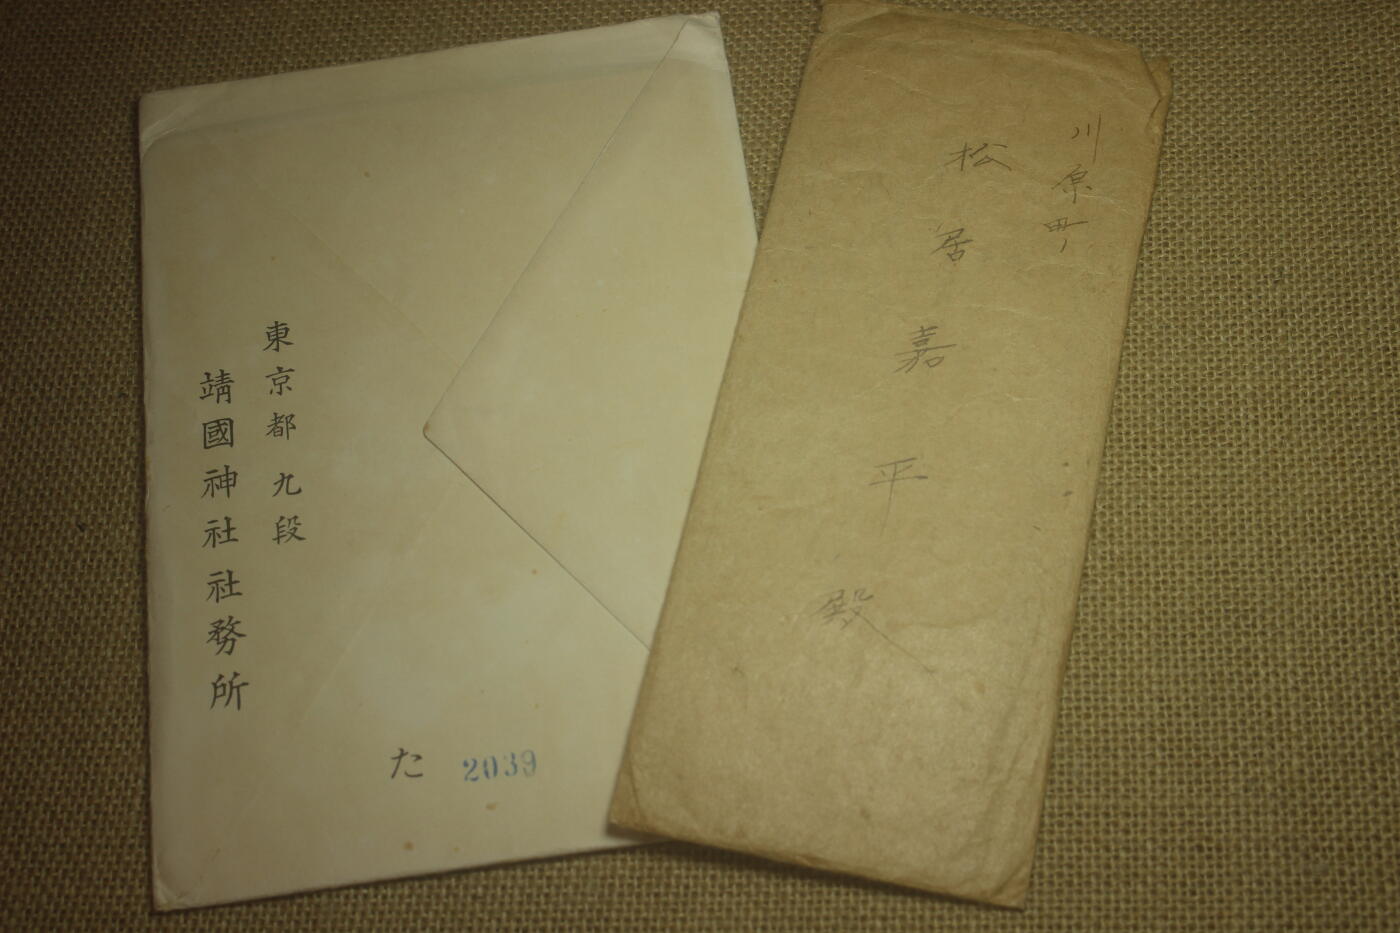 東京都九段
靖國神社社務所
た 2039
川原町
松居嘉平殿